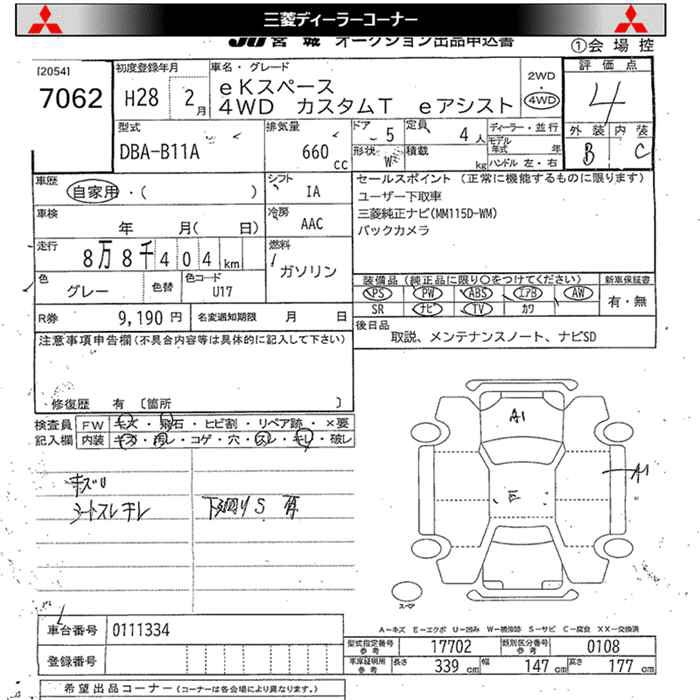 三菱ディーラーコーナー
JU宮城 オークション出品申込書
①会場控
[2054]
7062
初度登録年月
H28 2月
車名・グレード
eKスペース
4WD カスタムT eアシスト
2WD
・
4WD
評価点
4
外装 内装
B C
型式
DBA-B11A
排気量
660 cc
ドア 5
定員 4人
形状 W
積載 kg
ディーラー・並行
モデル年式 年
ハンドル 左・右
車歴
自家用・( )
シフト
IA
車検
年 月( 日)
冷房
AAC
走行
8万8千404km
燃料
ガソリン
色
グレー
色替
色コード
U17
R券 9,190円
名変通知期限 月 日
セールスポイント (正常に機能するものに限ります)
ユーザー下取車
三菱純正ナビ(MM115D-WM)
バックカメラ
装備品 (純正品に限り○をつけてください)
新車保証書
PS PW ABS エアB AW
SR ナビ TV カワ
有・無
後日品
取説、メンテナンスノート、ナビSD
注意事項申告欄(不具合内容等は具体的に記入して下さい)
修復歴 有 〔箇所 〕
検査員記入欄
FW キズ・飛石・ヒビ割・リペア跡・×要
内装 キズ・汚レ・コゲ・穴・スレ・キレ・破レ
キズリ
シートスレ キレ
下廻りS
A1
E
A1
スペア
A-キズ E-エクボ U-凹み S-サビ C-腐食 XX-交換済
車台番号 0111334
登録番号
型式指定番号参考 17702
類別区分番号参考 0108
車庫証明用参考 長さ 339cm 幅 147cm 高さ 177cm
希望出品コーナー(コーナーは各会場により異なります。)